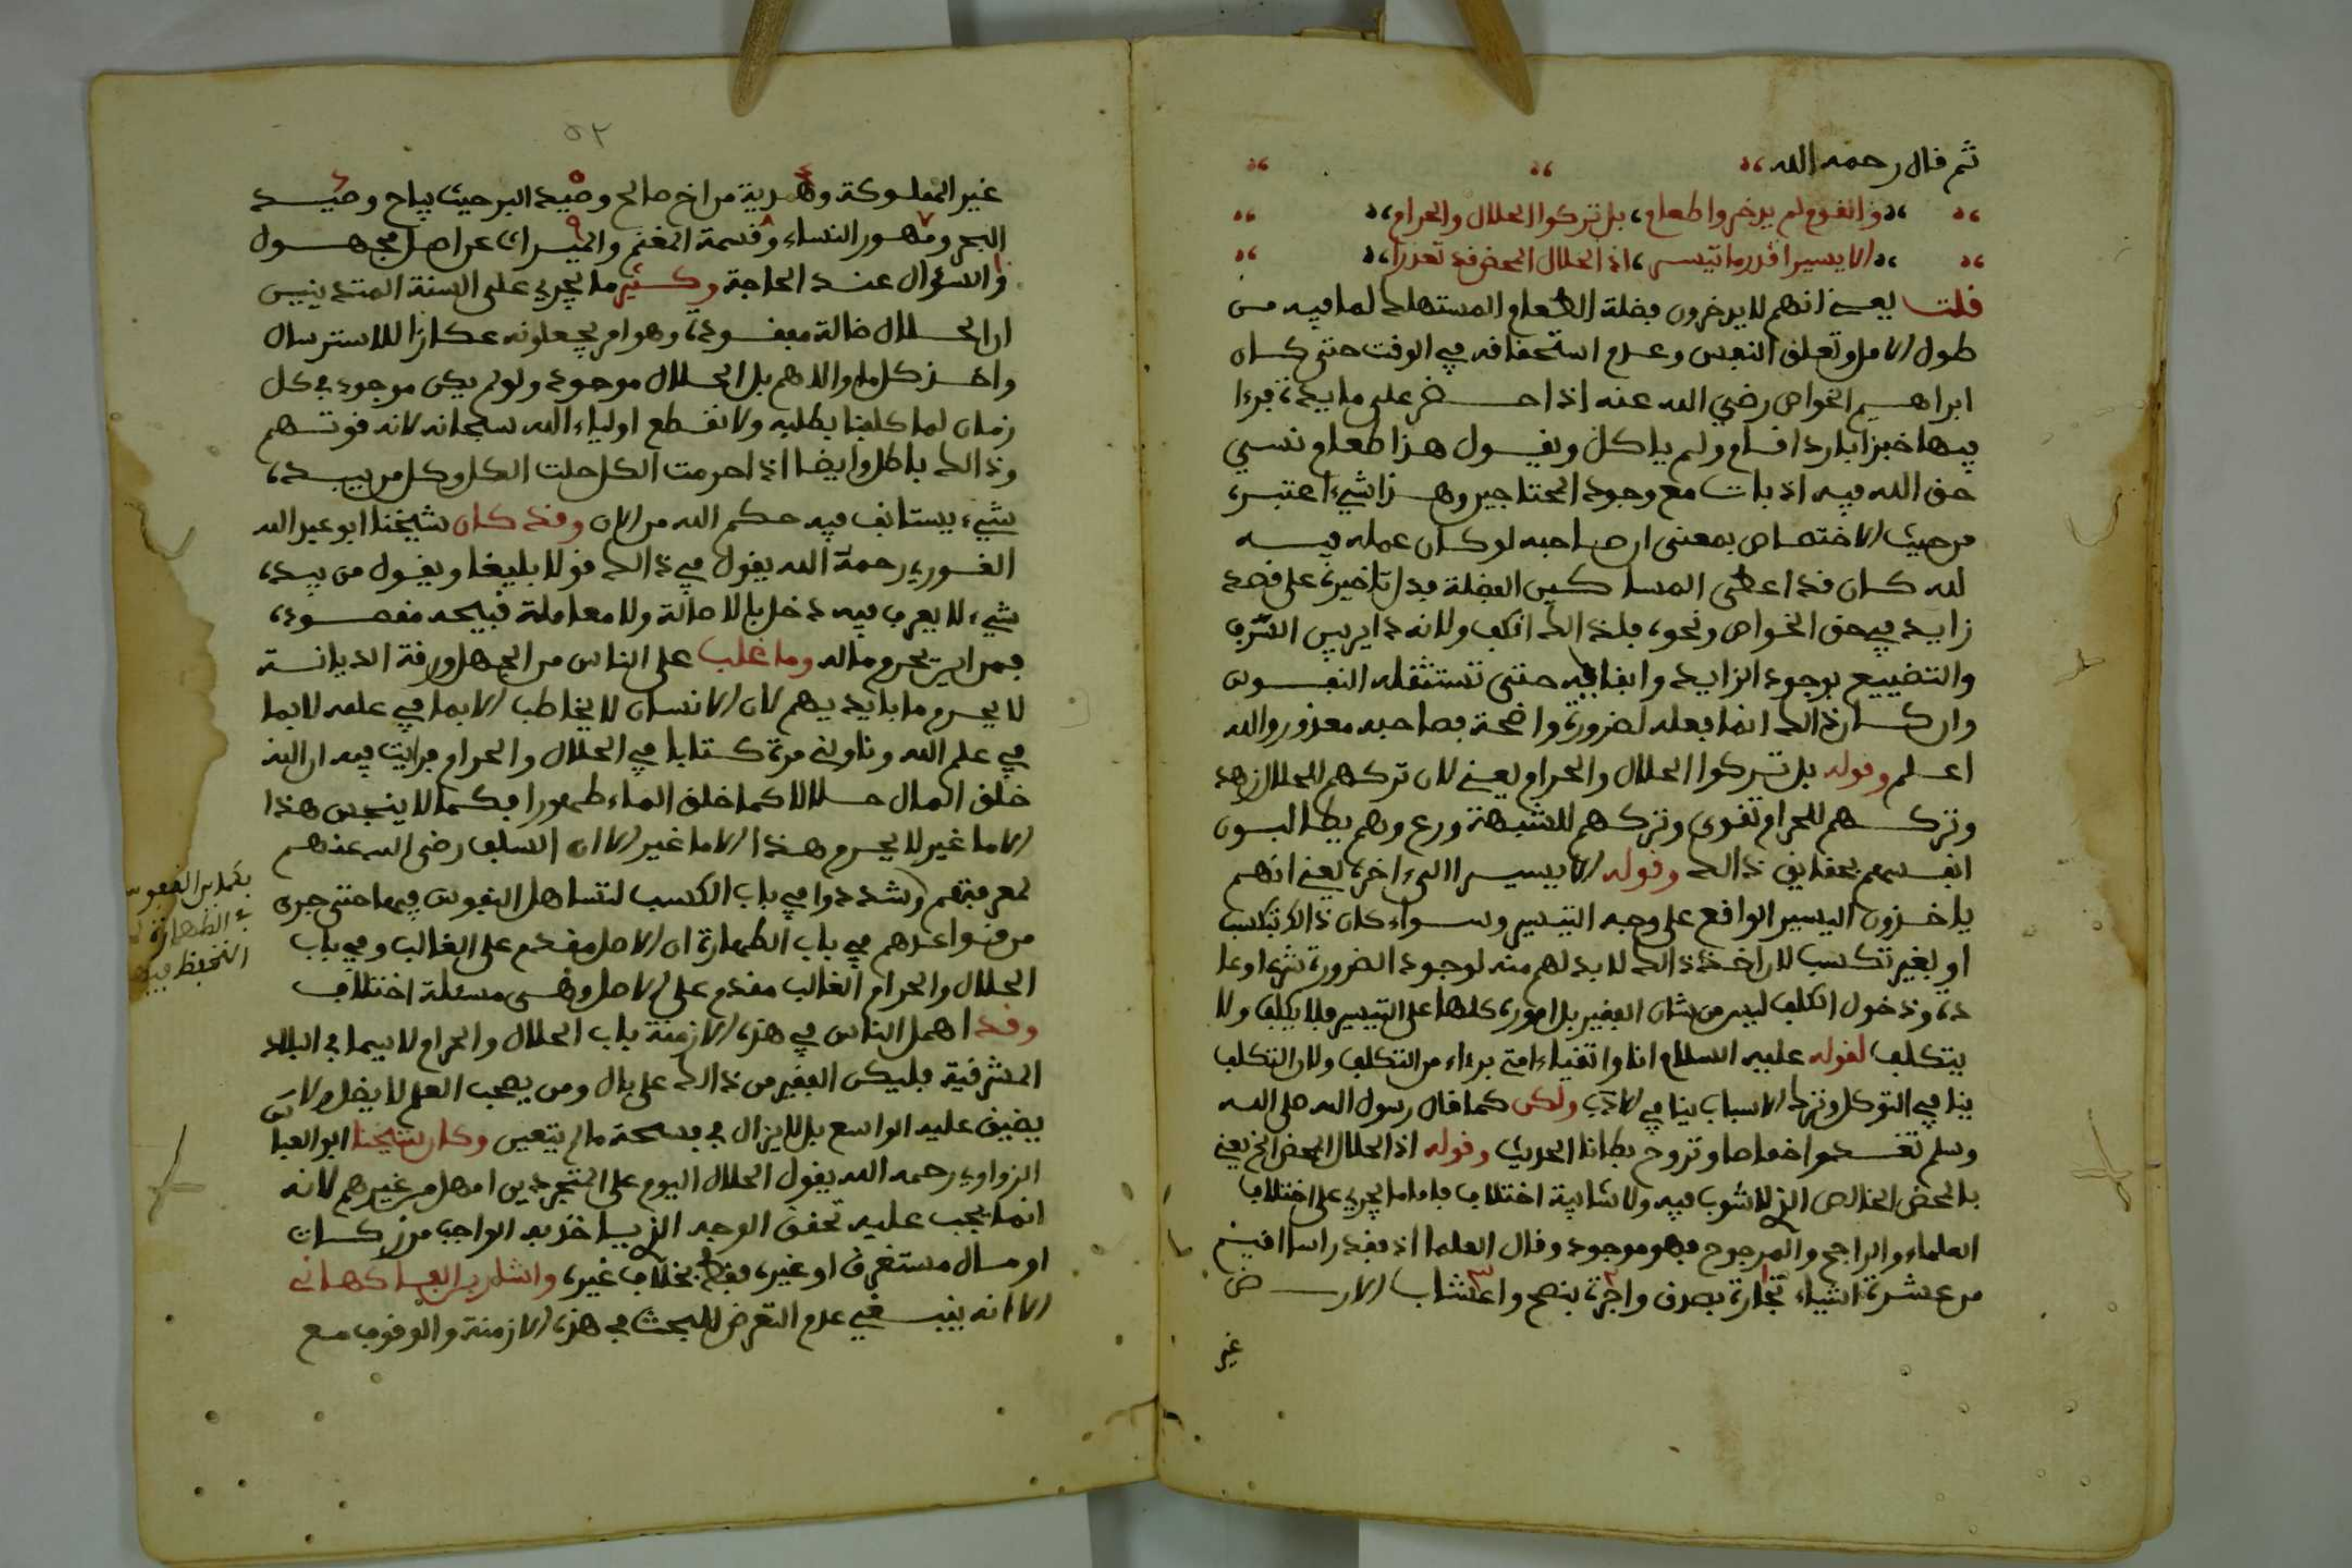 ثم قال رحمه الله
والقوم لم يدخروا طعام، بل تركوا الحلال والحرام،
الا يسيرا قدر ما تيسر، اذ الحلال المحض قد تعذرا،
قلت يعني انهم لا يدخرون فضلة الطعام المستهلك لما فيه من
طول الامل وتعلق النفس وعدم استحقاقه في الوقت حتى كان
ابراهيم الخواص رضي الله عنه اذا احضر على مايدة، فرءا
فيها خبزا باردا قام ولم ياكل ويقول هذا طعام نسي
حق الله فيه اذ بات مع وجود المحتاجين وهذا شيء اعتبره
من حيث الاختصاص بمعنى ان صاحبه لو كان عمله فيه
لله كان قد اعطى المساكين الفضلة فدل تاخيره على قصد
زايد في حق الخواص ونحوه فلذالك انكف ولانه داير بين السرف
والتضييع بوجود الزايد وابقايه حتى تستثقله النفوس
وان كان ذالك انما يفعله لضرورة واضحة فصاحبه معذور والله
اعلم وقوله بل تركوا الحلال والحرام يعني لان تركهم للحلال زهد
وتركهم للحرام تقوى وتركهم للشبهة ورع وهم يطالبون
انفسهم بحقايق ذالك وقوله الا يسيرا الىءاخره يعني انهم
ياخذون اليسير الواقع على وجه التيسير وسواء كان ذالك بتكسب
او بغير تكسب لان اخذ ذالك لا بد لهم منه لوجود الضرورة شرعا وعا
دة، ودخول الكلف ليس من شان الفقير بل اموره كلها على التيسير فلا يكلف ولا
يتكلف لقوله عليه السلام انا واتقياء امتي برءاء من التكلف ولان التكلف
ينافي التوكل وترك الاسباب ينافي الادب ولكن كما قال رسول الله صلى الله
وسلم تغدوا خماصا وتروح بطانا الحديث وقوله اذ الحلال المحض الخ يعني
بالمحض الخالص الذي لا شوب فيه ولا شايبة اختلاف فاما ما يجري على اختلاف
العلماء والراجح والمرجوح فهو موجود وقال العلما اذ فقد راسا اقيم
من عشرة اشياء تجارة بصدق واجرة بنصح واعشاب الارض
غير
٥٢
غير المملوكة وهدية من اخ صالح وصيد البر حيث يباح وصيد
البحر ومهور النساء وقسمة المغنم والميراث عن اصل مجهول
والسؤال عند الحاجة وكثير ما يجري على السنة المتدينين
ان الحلال ضالة مفقودة، وهو امر يجعلونه عكازا للاسترسال
واخذ كل ما والاهم بل الحلال موجود ولو لم يكن موجود في كل
زمان لما كلفنا بطلبه ولانقطع اولياء الله سبحانه لانه قوتهم
وذالك باطل وايضا اذا حرمت الكل حلت الكل وكل من بيده
شيء يستانف فيه حكم الله من الان وقد كان شيخنا ابو عبد الله
القوري رحمة الله يقول في ذالك قولا بليغا ويقول من بيده
شيء لا يعرف فيه دخل بالاصالة ولا معاملة قبيحه مقصودة،
فمن اين يحرم ماله وما غلب على الناس من الجهل ورقة الديانة
لا يحرم ما بايديهم لان الانسان لا يخاطب الا بما في علمه لا بما
في علم الله وناولني مرة كتابا في الحلال والحرام فرايت فيه ان الله
خلق المال حلالا كما خلق الماء طهورا فكما لا ينجس هذا
الا ما غير لا يحرم هذا الا ما غير الا ان السلف رضي الله عنهم
لمعرفتهم شددوا في باب الكسب لتساهل النفوس فيها حتى جرى
من قواعدهم في باب الطهارة ان الاصل مقدم على الغالب وفي باب
الحلال والحرام الغالب مقدم على الاصل وهي مسئلة اختلاف
وقد اهمل الناس في هذه الازمنة باب الحلال والحرام لا سيما في البلاد
المشرقية فليكن الفقير من ذالك على بال ومن يصحب العلم لا يضل ولا
يضيق عليه الواسع بل لا يزال في فسحة ما لم يتعين وكان شيخنا ابو العباس
الزواوي رحمه الله يقول الحلال اليوم على المتجردين اسهل من غيرهم لانه
انما يجب عليه تحقق الوجه الذي ياخذ به الواجب من زكات
او مال مستغرق او غيره فقط بخلاف غيره، واشار بن الفاكهاني
الا انه ينبغي عدم التعرض للبحث في هذه الازمنة والوقوف مع
النفوس
الطهارة
التحفظ فيها